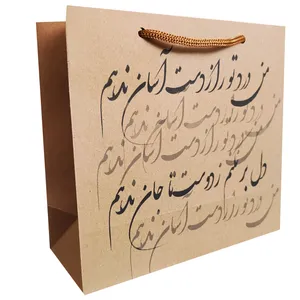 من درد تو را ز دست آسان ندهم
من درد تو را ز دست آسان ندهم
من درد تو را ز دست آسان ندهم
دل بر نکنم ز دوست تا جان ندهم
من درد تو را ز دست آسان ندهم